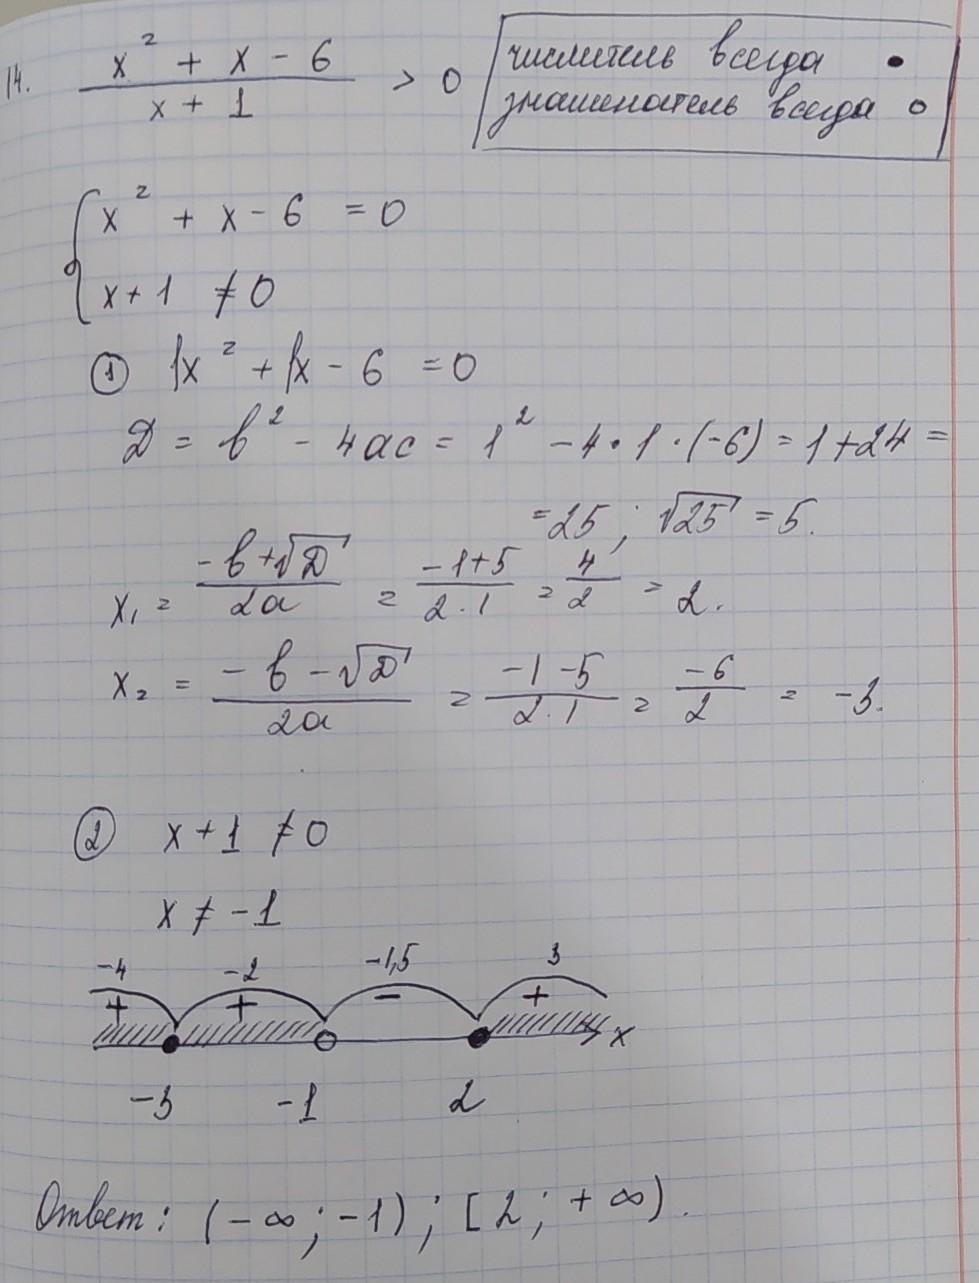 14. (x² + x - 6)/(x + 1) > 0
числитель всегда •
знаменатель всегда o
{ x² + x - 6 = 0
x + 1 ≠ 0
① 1x² + 1x - 6 = 0
D = b² - 4ac = 1² - 4 · 1 · (-6) = 1 + 24 =
= 25 ; √25 = 5.
x₁ = (-b + √D)/(2a) = (-1+5)/(2·1) = 4/2 = 2.
x₂ = (-b - √D)/(2a) = (-1-5)/(2·1) = -6/2 = -3.
② x + 1 ≠ 0
x ≠ -1
-4 -2 -1,5 3
+ + - +
x
-3 -1 2
Ответ: (-∞ ; -1) ; [2 ; +∞).